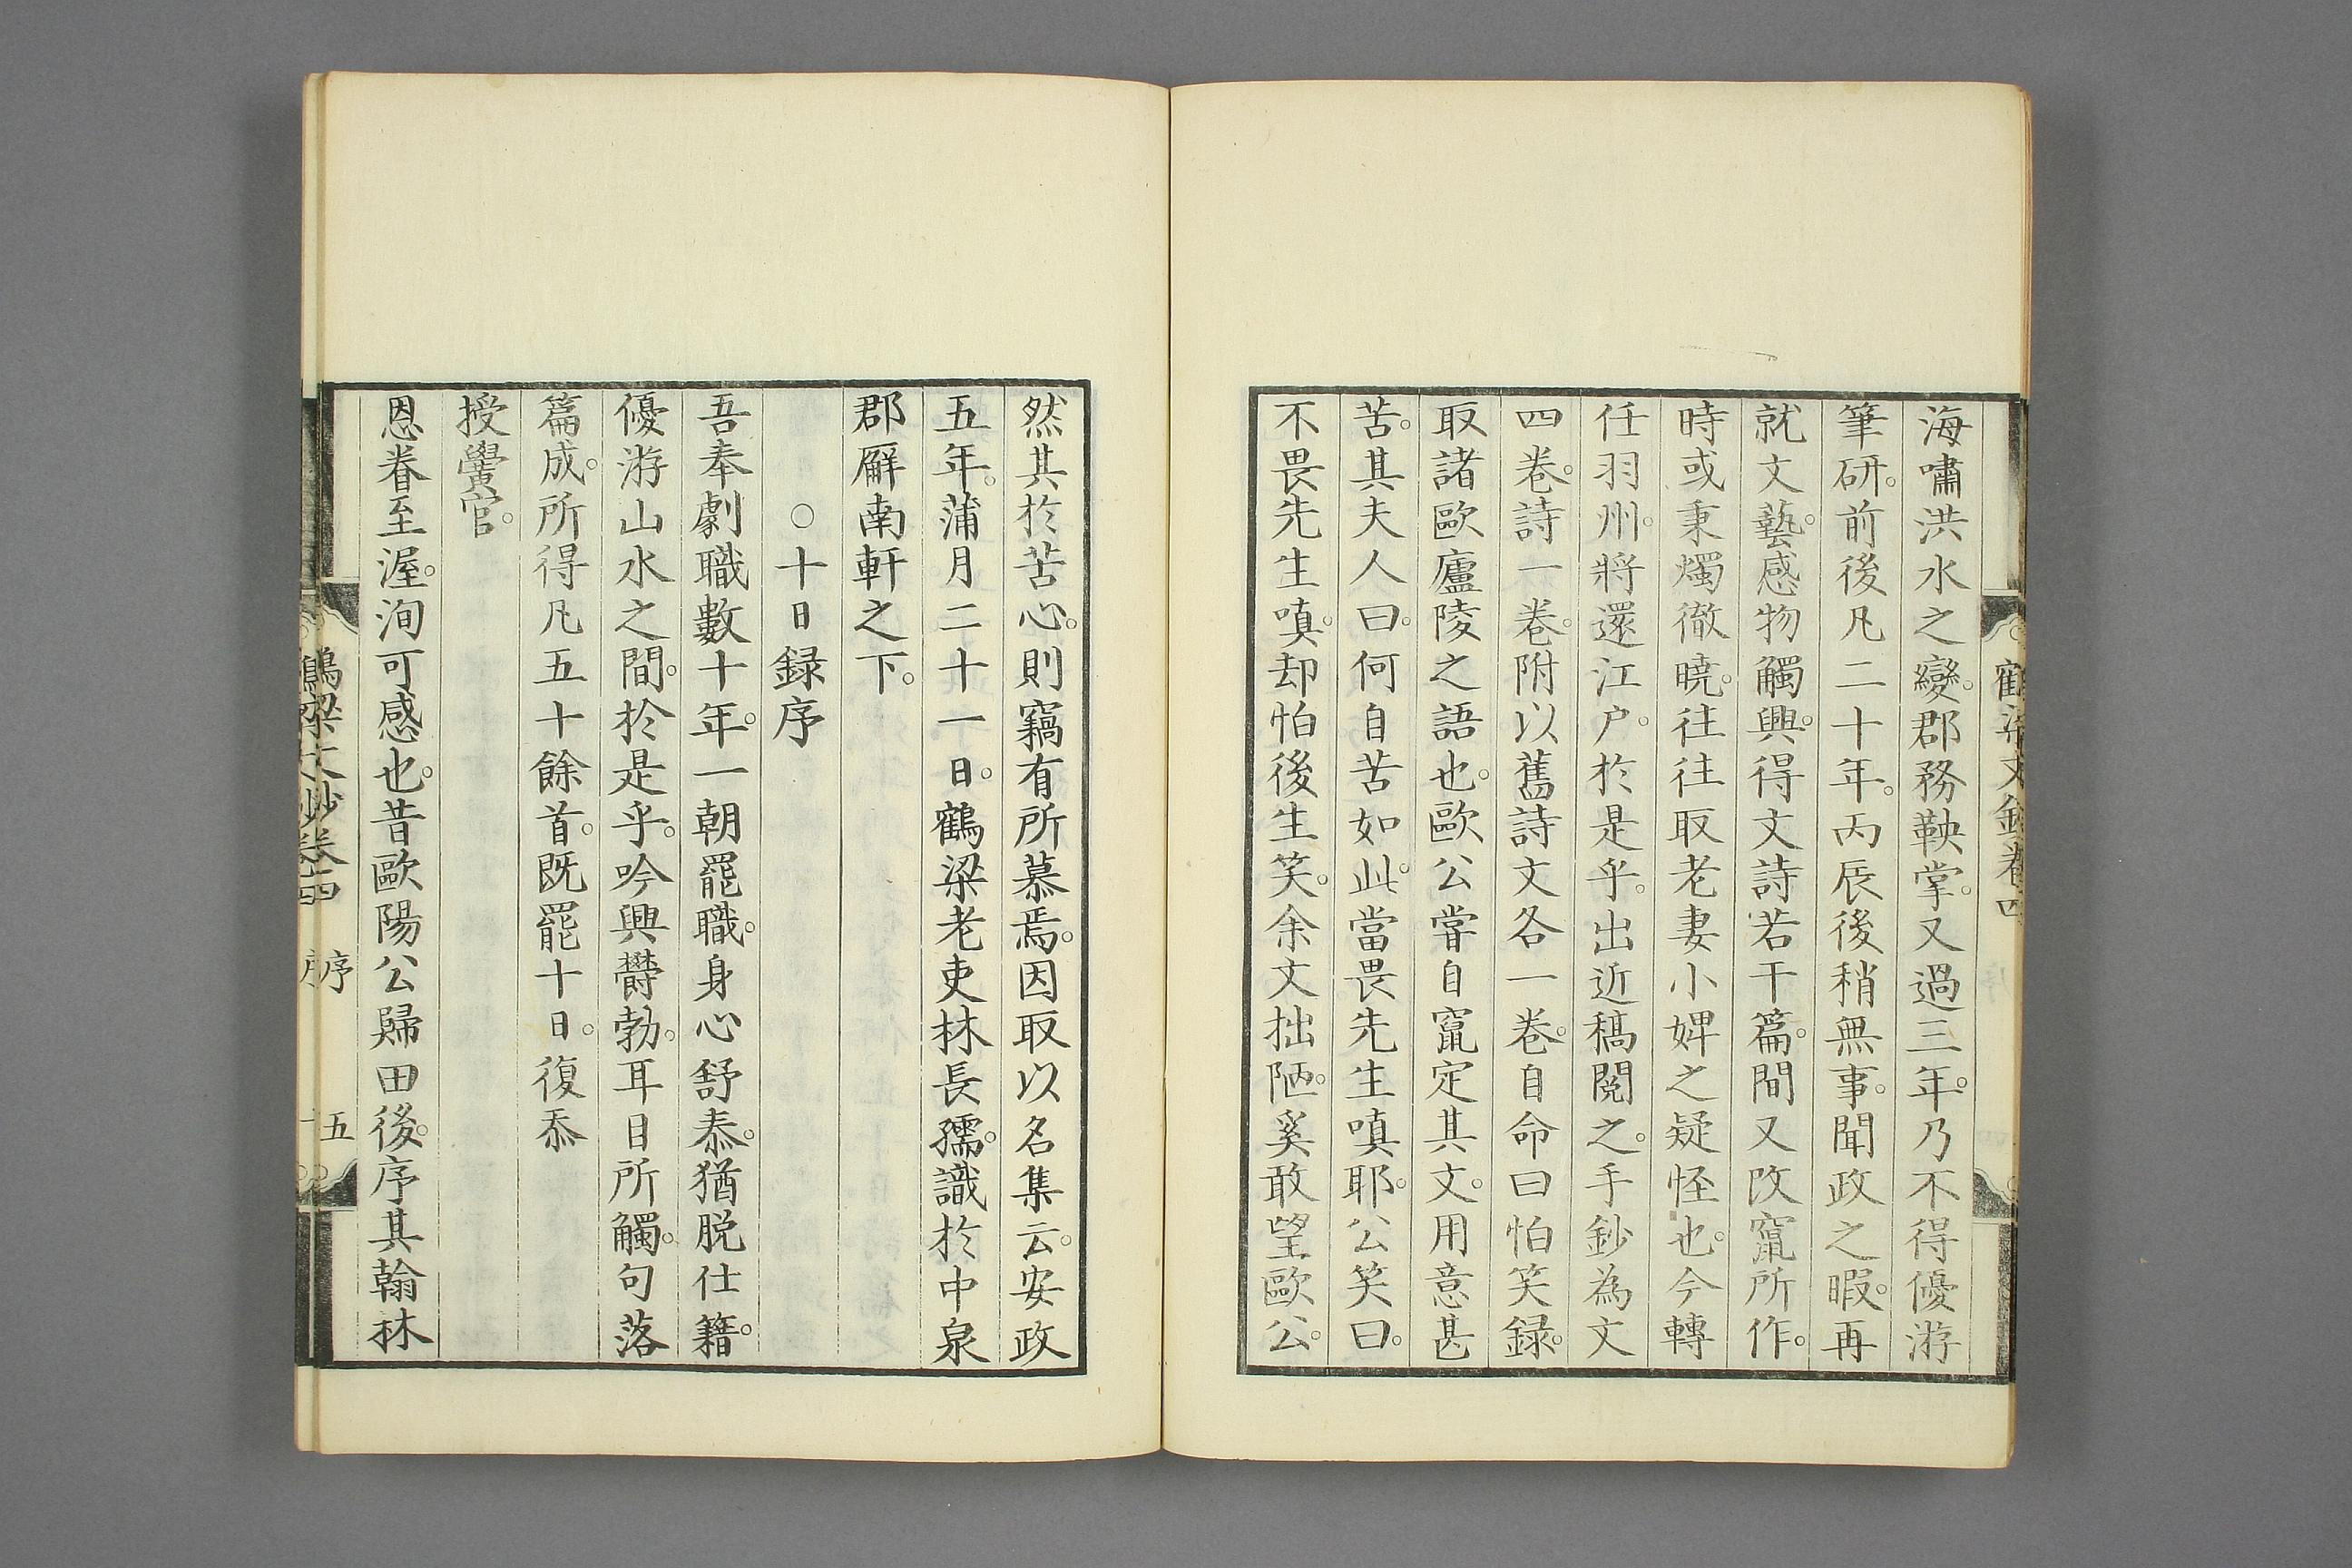 海嘯洪水之變。郡務鞅掌。又過三年。乃不得優游
筆研。前後凡二十年。丙辰後稍無事。聞政之暇。再
就文藝。感物觸興。得文詩若干篇。間又改竄所作。
時或秉燭徹曉。往往取老妻小婢之疑怪也。今轉
任羽州。將還江戶。於是乎。出近稿閱之。手鈔為文
四卷。詩一卷。附以舊詩文各一卷。自命曰怕笑録。
取諸歐廬陵之語也。歐公甞自竄定其文。用意甚
苦。其夫人曰。何自苦如此。當畏先生嗔耶。公笑曰。
不畏先生嗔。却怕後生笑。余文拙陋。奚敢望歐公。
然其於苦心。則竊有所慕焉。因取以名集云。安政
五年。蒲月二十一日。鶴梁老吏林長孺。識於中泉
郡廨南軒之下。
○十日録序
吾奉劇職數十年。一朝罷職。身心舒泰。猶脱仕籍。
優游山水之間。於是乎。吟興欝勃。耳目所觸。句落
篇成。所得凡五十餘首。既罷十日。復忝
授黌官。
恩眷至渥。洵可感也。昔歐陽公歸田後。序其翰林
鶴梁文鈔卷四 序 五